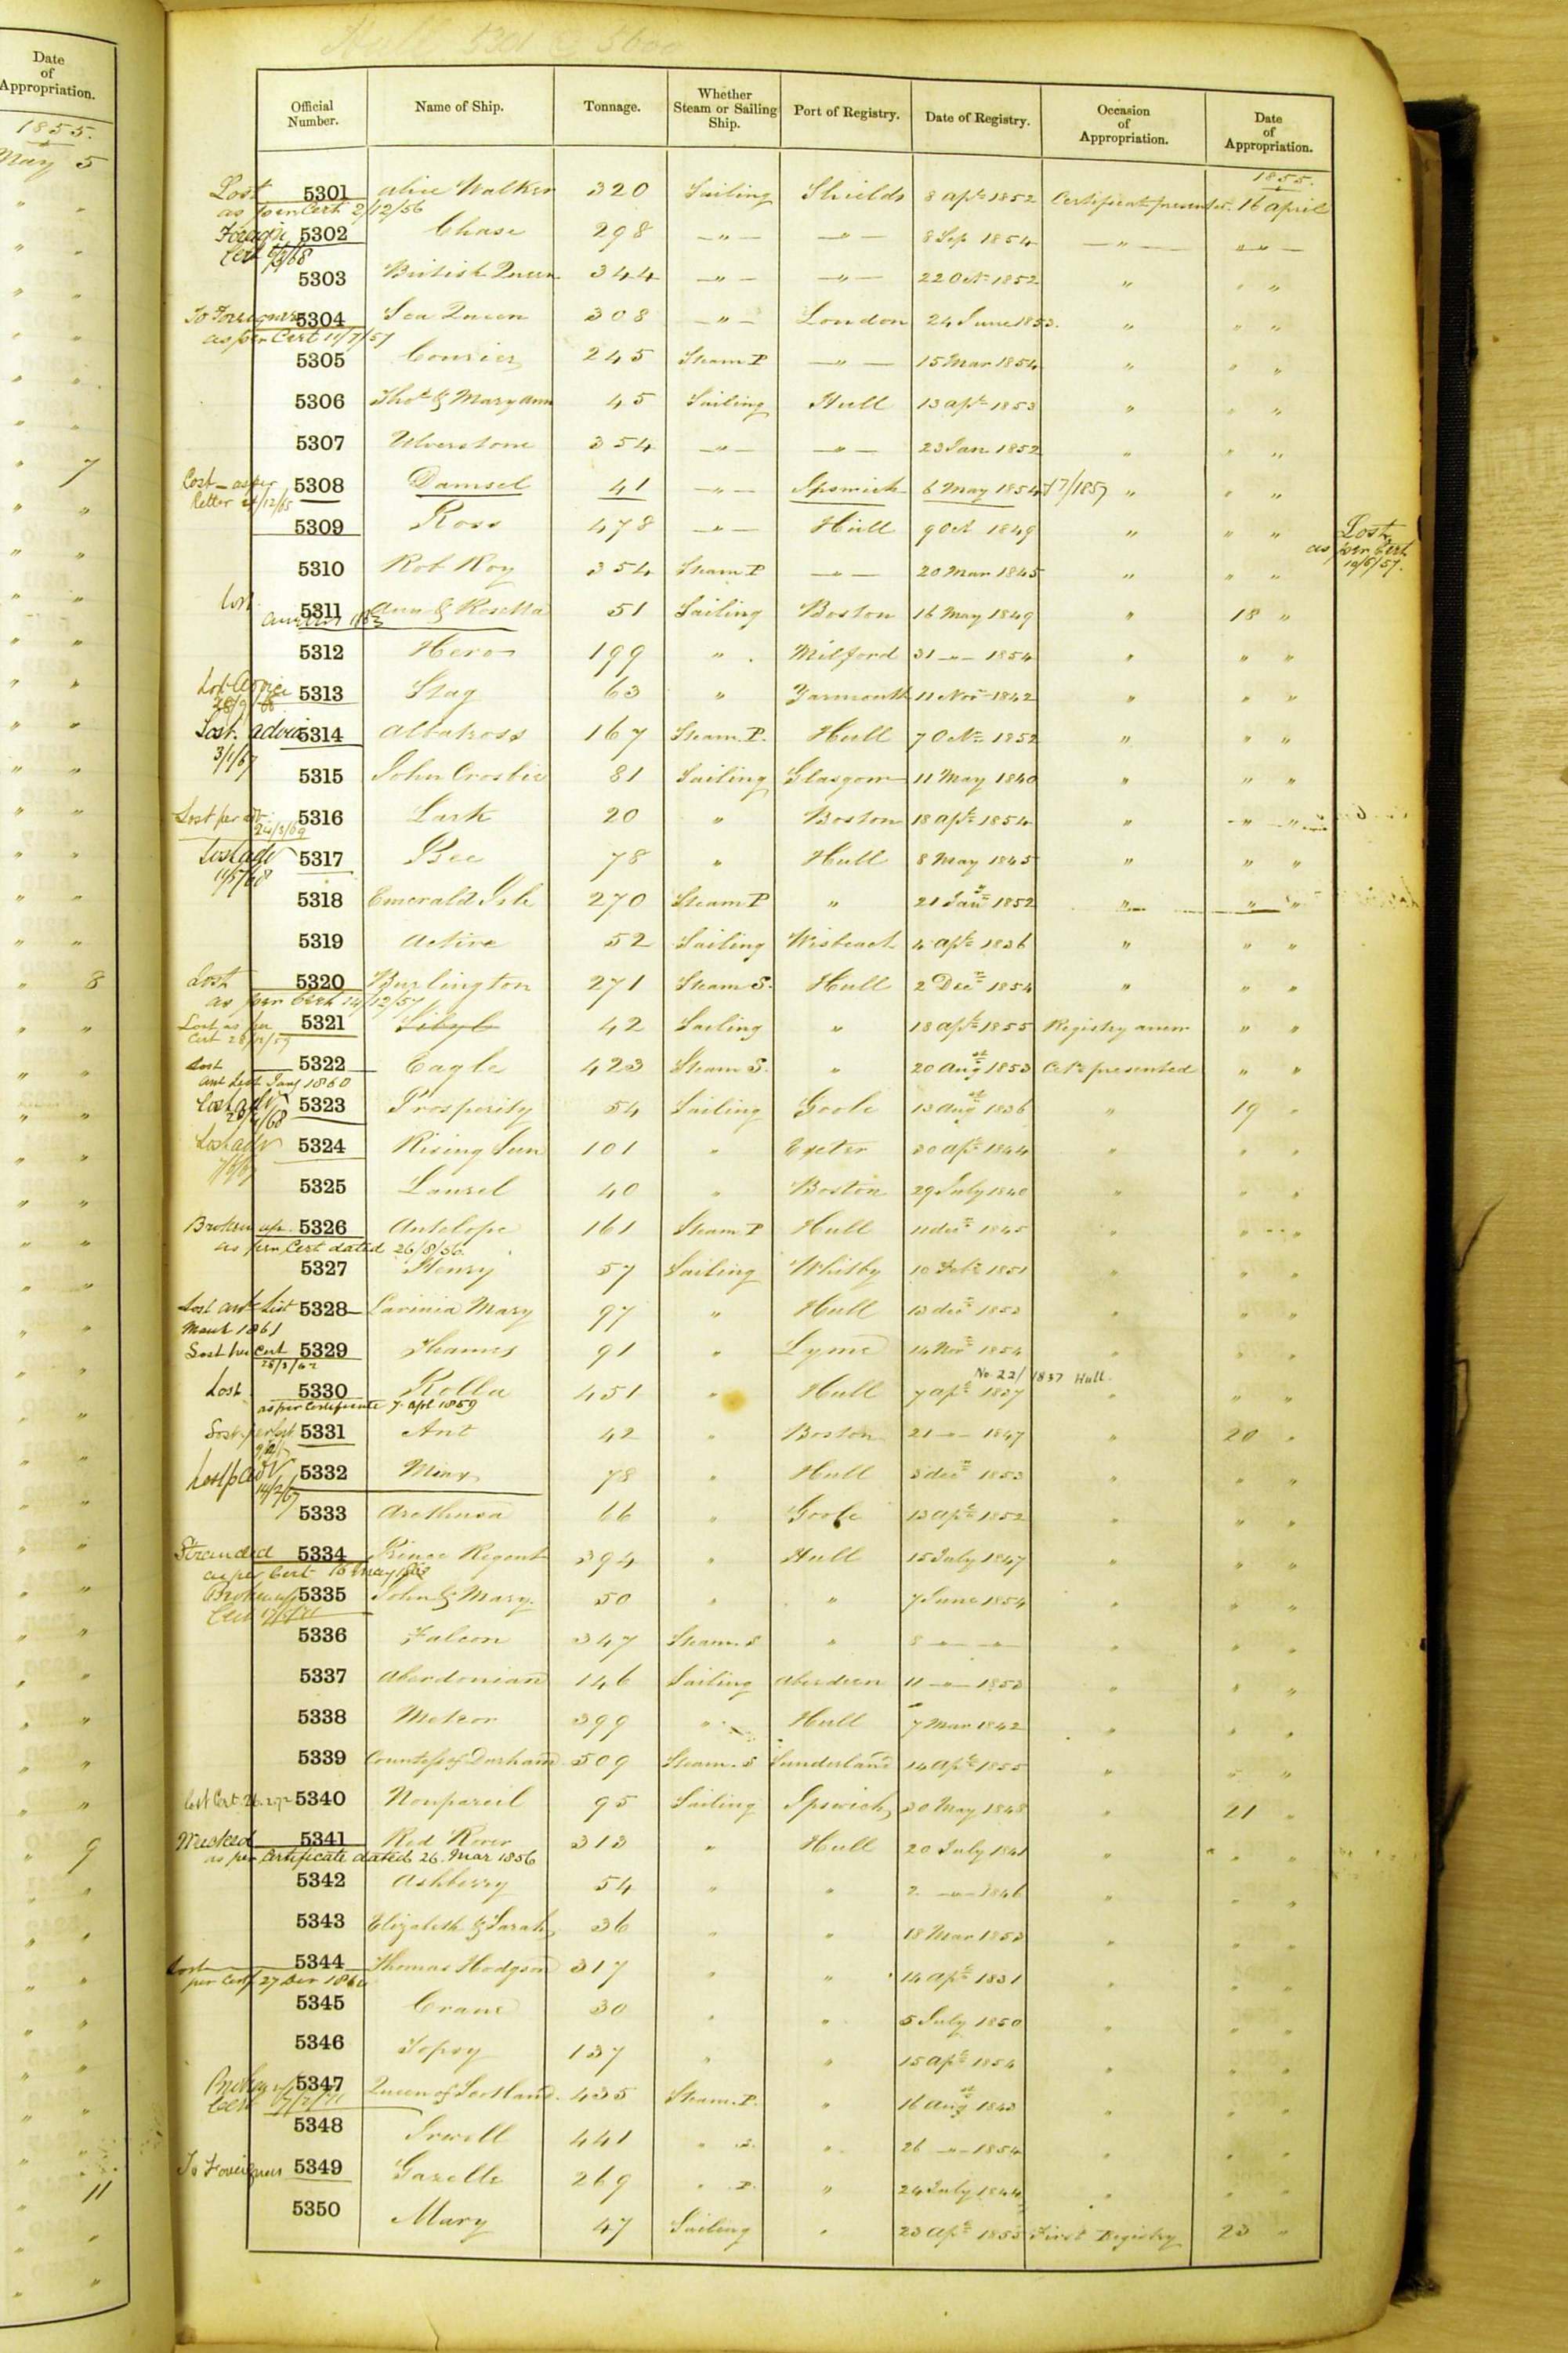 Hull 5301 @ 5600
Date of Appropriation.
1855.
May 5
7
8
9
11
Official Number. Name of Ship. Tonnage. Whether Steam or Sailing Ship. Port of Registry. Date of Registry. Occasion of Appropriation. Date of Appropriation.
1855.
Lost 5301 Alice Walker 320 Sailing Shields 8 Apl 1852 Certificate presented. 16 April
as per Cert 2/12/56
Foreign 5302 Chase 298 —"— —"— 8 Sep 1854 —"— —"—
Cert
5303 British Queen 344 —"— —"— 22 Oct 1852 " " "
To Foreigners 5304 Sea Queen 308 —"— London 24 June 1853. " " "
as per Cert 11/7/57
5305 Courier 245 Steam P —"— 15 Mar 1854 " " "
5306 Thos & Mary Ann 45 Sailing Hull 13 Apl 1853 " " "
5307 Ulverstone 354 —"— —"— 23 Jan 1852 " " "
Lost — as per 5308 Damsel 41 —"— Ipswich 6 May 1854 7/1857 " " "
letter 21/12/65
5309 Ross 478 —"— Hull 9 Oct 1849 " " " Lost
as per Cert
19/6/57.
5310 Rob Roy 354 Steam P —"— 20 Mar 1845 " " "
Lost 5311 Ann & Rosetta 51 Sailing Boston 16 May 1849 " 18 "
5312 Hero 199 " Milford 31 —"— 1854 " " "
Lost Advice 5313 Stag 63 " Yarmouth 11 Nov 1842 " " "
5314 Albatross 167 Steam. P. Hull 7 Oct 1852 " " "
Lost. advice
3/1/67
5315 John Crosbie 81 Sailing Glasgow 11 May 1840 " " "
Lost per adv. 5316 Lark 20 " Boston 18 Apl 1854 " " "
24/3/69
Lost adv 5317 Bee 78 " Hull 8 May 1845 " " "
11/5/68
5318 Emerald Isle 270 Steam P " 21 Jany 1852 " " "
5319 Active 52 Sailing Wisbeach 4 Apl 1836 " " "
Lost 5320 Burlington 271 Steam S. Hull 2 Decr 1854 " " "
as per Cert 14/12/57
Lost as per 5321 Sibyl 42 Sailing " 18 Apl 1855 Registry anew " "
Cert 28/12/59
Lost 5322 Eagle 423 Steam S. " 20 Augt 1853 Cert presented " "
Ann List Jany 1860
Lost adv 5323 Prosperity 54 Sailing Goole 13 Augt 1836 " 19 "
Lost adv 5324 Rising Sun 101 " Exeter 30 Apl 1844 " " "
5325 Laurel 40 " Boston 29 July 1840 " " "
Broken up. 5326 Antelope 161 Steam P Hull 11 Decr 1845 " " "
as per Cert dated 26/8/56.
5327 Henry 57 Sailing Whitby 10 Feby 1851 " " "
Lost Ann List 5328 Lavinia Mary 97 " Hull 13 Decr 1853 " " "
March 1861
Lost per Cert 5329 Thames 91 " Lyme 14 Novr 1854 " " "
28/3/62
No 22/1837 Hull.
Lost. 5330 Rolla 451 " Hull 7 Apl 1837 " " "
as per Certificate 7. Apl 1859
Lost. 5331 Ant 42 " Boston 21 —"— 1847 " 20 "
Lost p adv 5332 Minx 78 " Hull 3 Decr 1853 " " "
14/2/67
5333 Arethusa 66 " Goole 13 Apl 1852 " " "
Stranded 5334 Prince Regent 394 " Hull 15 July 1847 " " "
as per Cert 16 May
Broken up 5335 John & Mary. 50 " " 7 June 1854 " " "
Cert
5336 Falcon 347 Steam. S " 8 —"— —"— " " "
5337 Aberdonian 146 Sailing Aberdeen 11 —"— 1853 " " "
5338 Meteor 399 " Hull 7 Mar 1842 " " "
5339 Countess of Durham. 509 Steam. S Sunderland 14 Apl 1855 " " "
Lost Cert. 5340 Nonpareil 95 Sailing Ipswich 30 May 1848 " 21 "
Wrecked 5341 Red Rover 313 " Hull 20 July 1841 " " "
as per Certificate dated 26. Mar 1856
5342 Ashberry 54 " " 2 —"— 1846 " " "
5343 Elizabeth & Sarah 36 " " 18 Mar 1853 " " "
Lost 5344 Thomas Hodgson 317 " " 14 Apl 1831 " " "
per Cert 27 Decr
5345 Crane 30 " " 5 July 1850 " " "
5346 Topsy 137 " " 15 Apl 1854 " " "
Broken up 5347 Queen of Scotland. 435 Steam. P. " 16 Augt 1843 " " "
Cert
5348 Irwell 441 " S. " 26 —"— 1854 " " "
To Foreigners 5349 Gazelle 269 " P. " 24 July 1844 " " "
5350 Mary 47 Sailing " 23 Apl 1855 First Registry 23 "